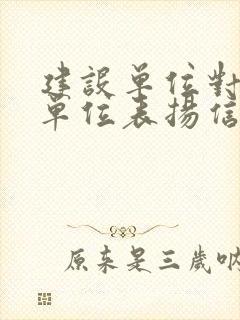 建設單位對
單位表揚信
原来是三歲吶